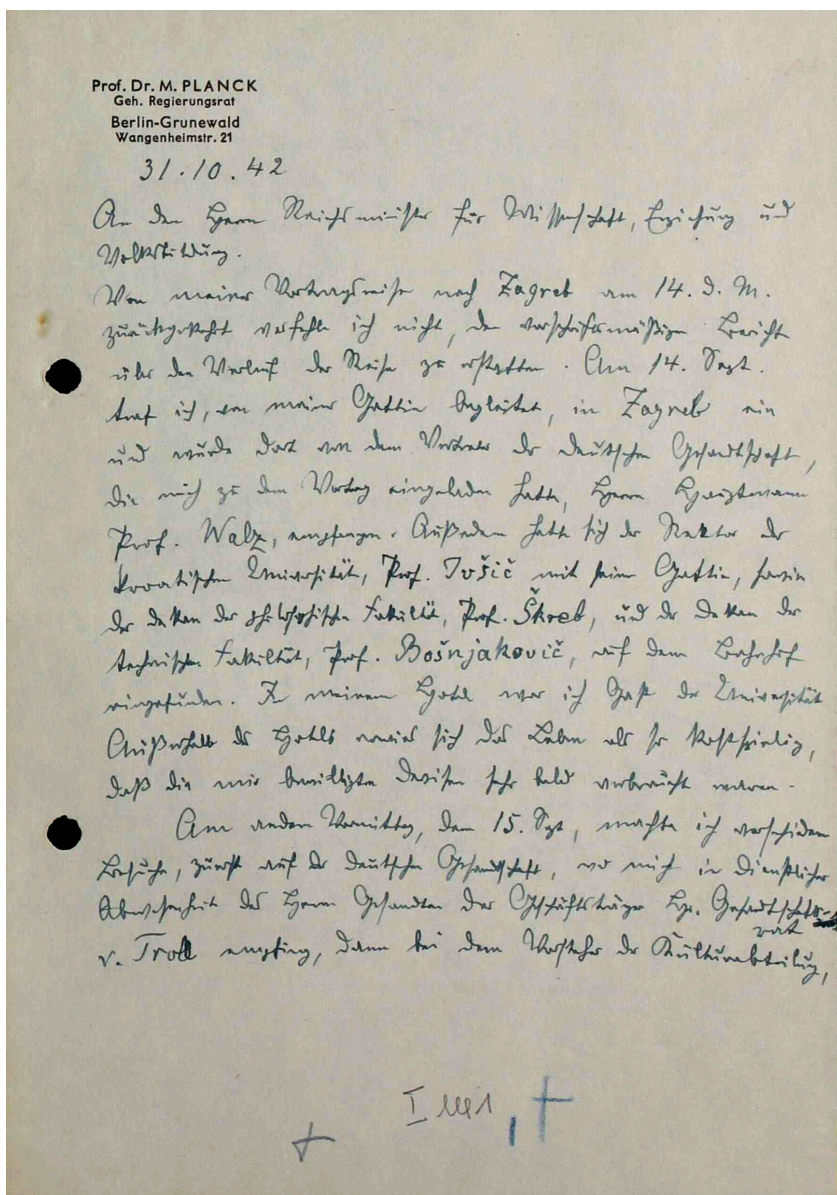 Prof. Dr. M. PLANCK
Geh. Regierungsrat
Berlin-Grunewald
Wangenheimstr. 21
31.10.42
An den Herrn Reichsminister für Wissenschaft, Erziehung und
Volksbildung.
Von meiner Vortragsreise nach Zagreb am 14. d. M.
zurückgekehrt verfehle ich nicht, den vorschriftsmäßigen Bericht
über den Verlauf der Reise zu erstatten. Am 14. Sept.
traf ich, von meiner Gattin begleitet, in Zagreb ein
und wurde dort von dem Vertreter der deutschen Gesandtschaft,
die mich zu dem Vortrag eingeladen hatte, Herrn Hauptmann
Prof. Walz, empfangen. Außerdem hatte sich der Rektor der
kroatischen Universität, Prof. Ivšič mit seiner Gattin, sowie
der Dekan der philosophischen Fakultät, Prof. Škreb, und der Dekan der
technischen Fakultät, Prof. Bošnjakovič, auf dem Bahnhof
eingefunden. In meinem Hotel war ich Gast der Universität
Außerhalb des Hotels erwies sich das Leben als so kostspielig,
daß die mir bewilligten Devisen sehr bald verbraucht waren.
Am andern Vormittag, dem 15. Sept, machte ich verschiedene
Besuche, zuerst auf der deutschen Gesandtschaft, wo mich in dienstlicher
Abwesenheit des Herrn Gesandten der Geschäftsträger Hr. Gesandtschafts-
rat
v. Troll empfing, dann bei dem Vorsteher der Kulturabteilung,